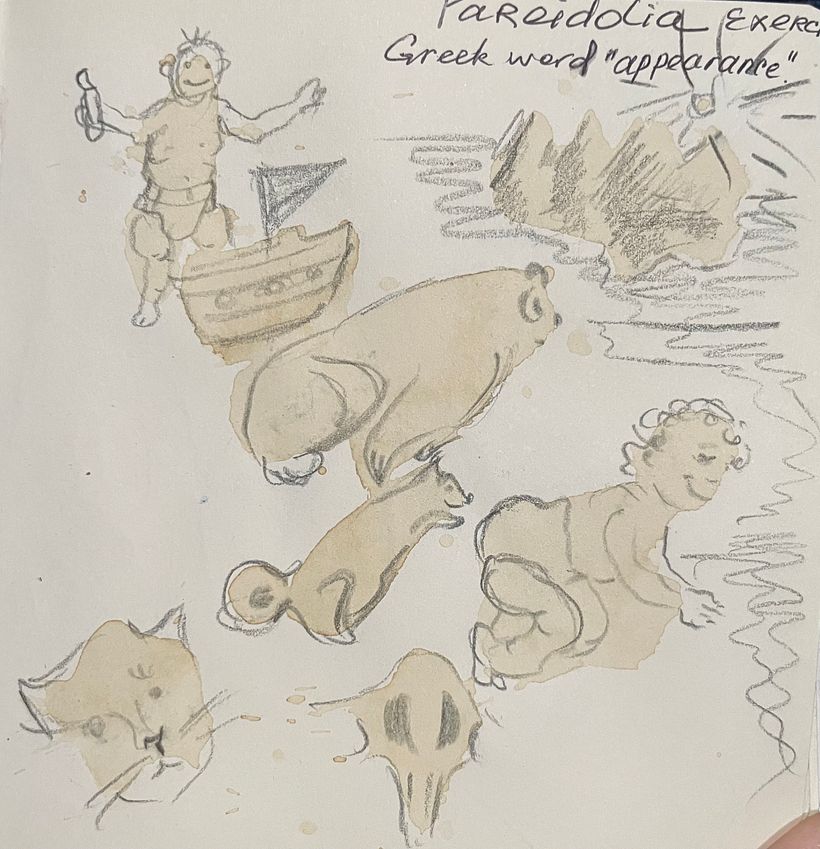 Pareidolia Exerc
Greek word "appearance"